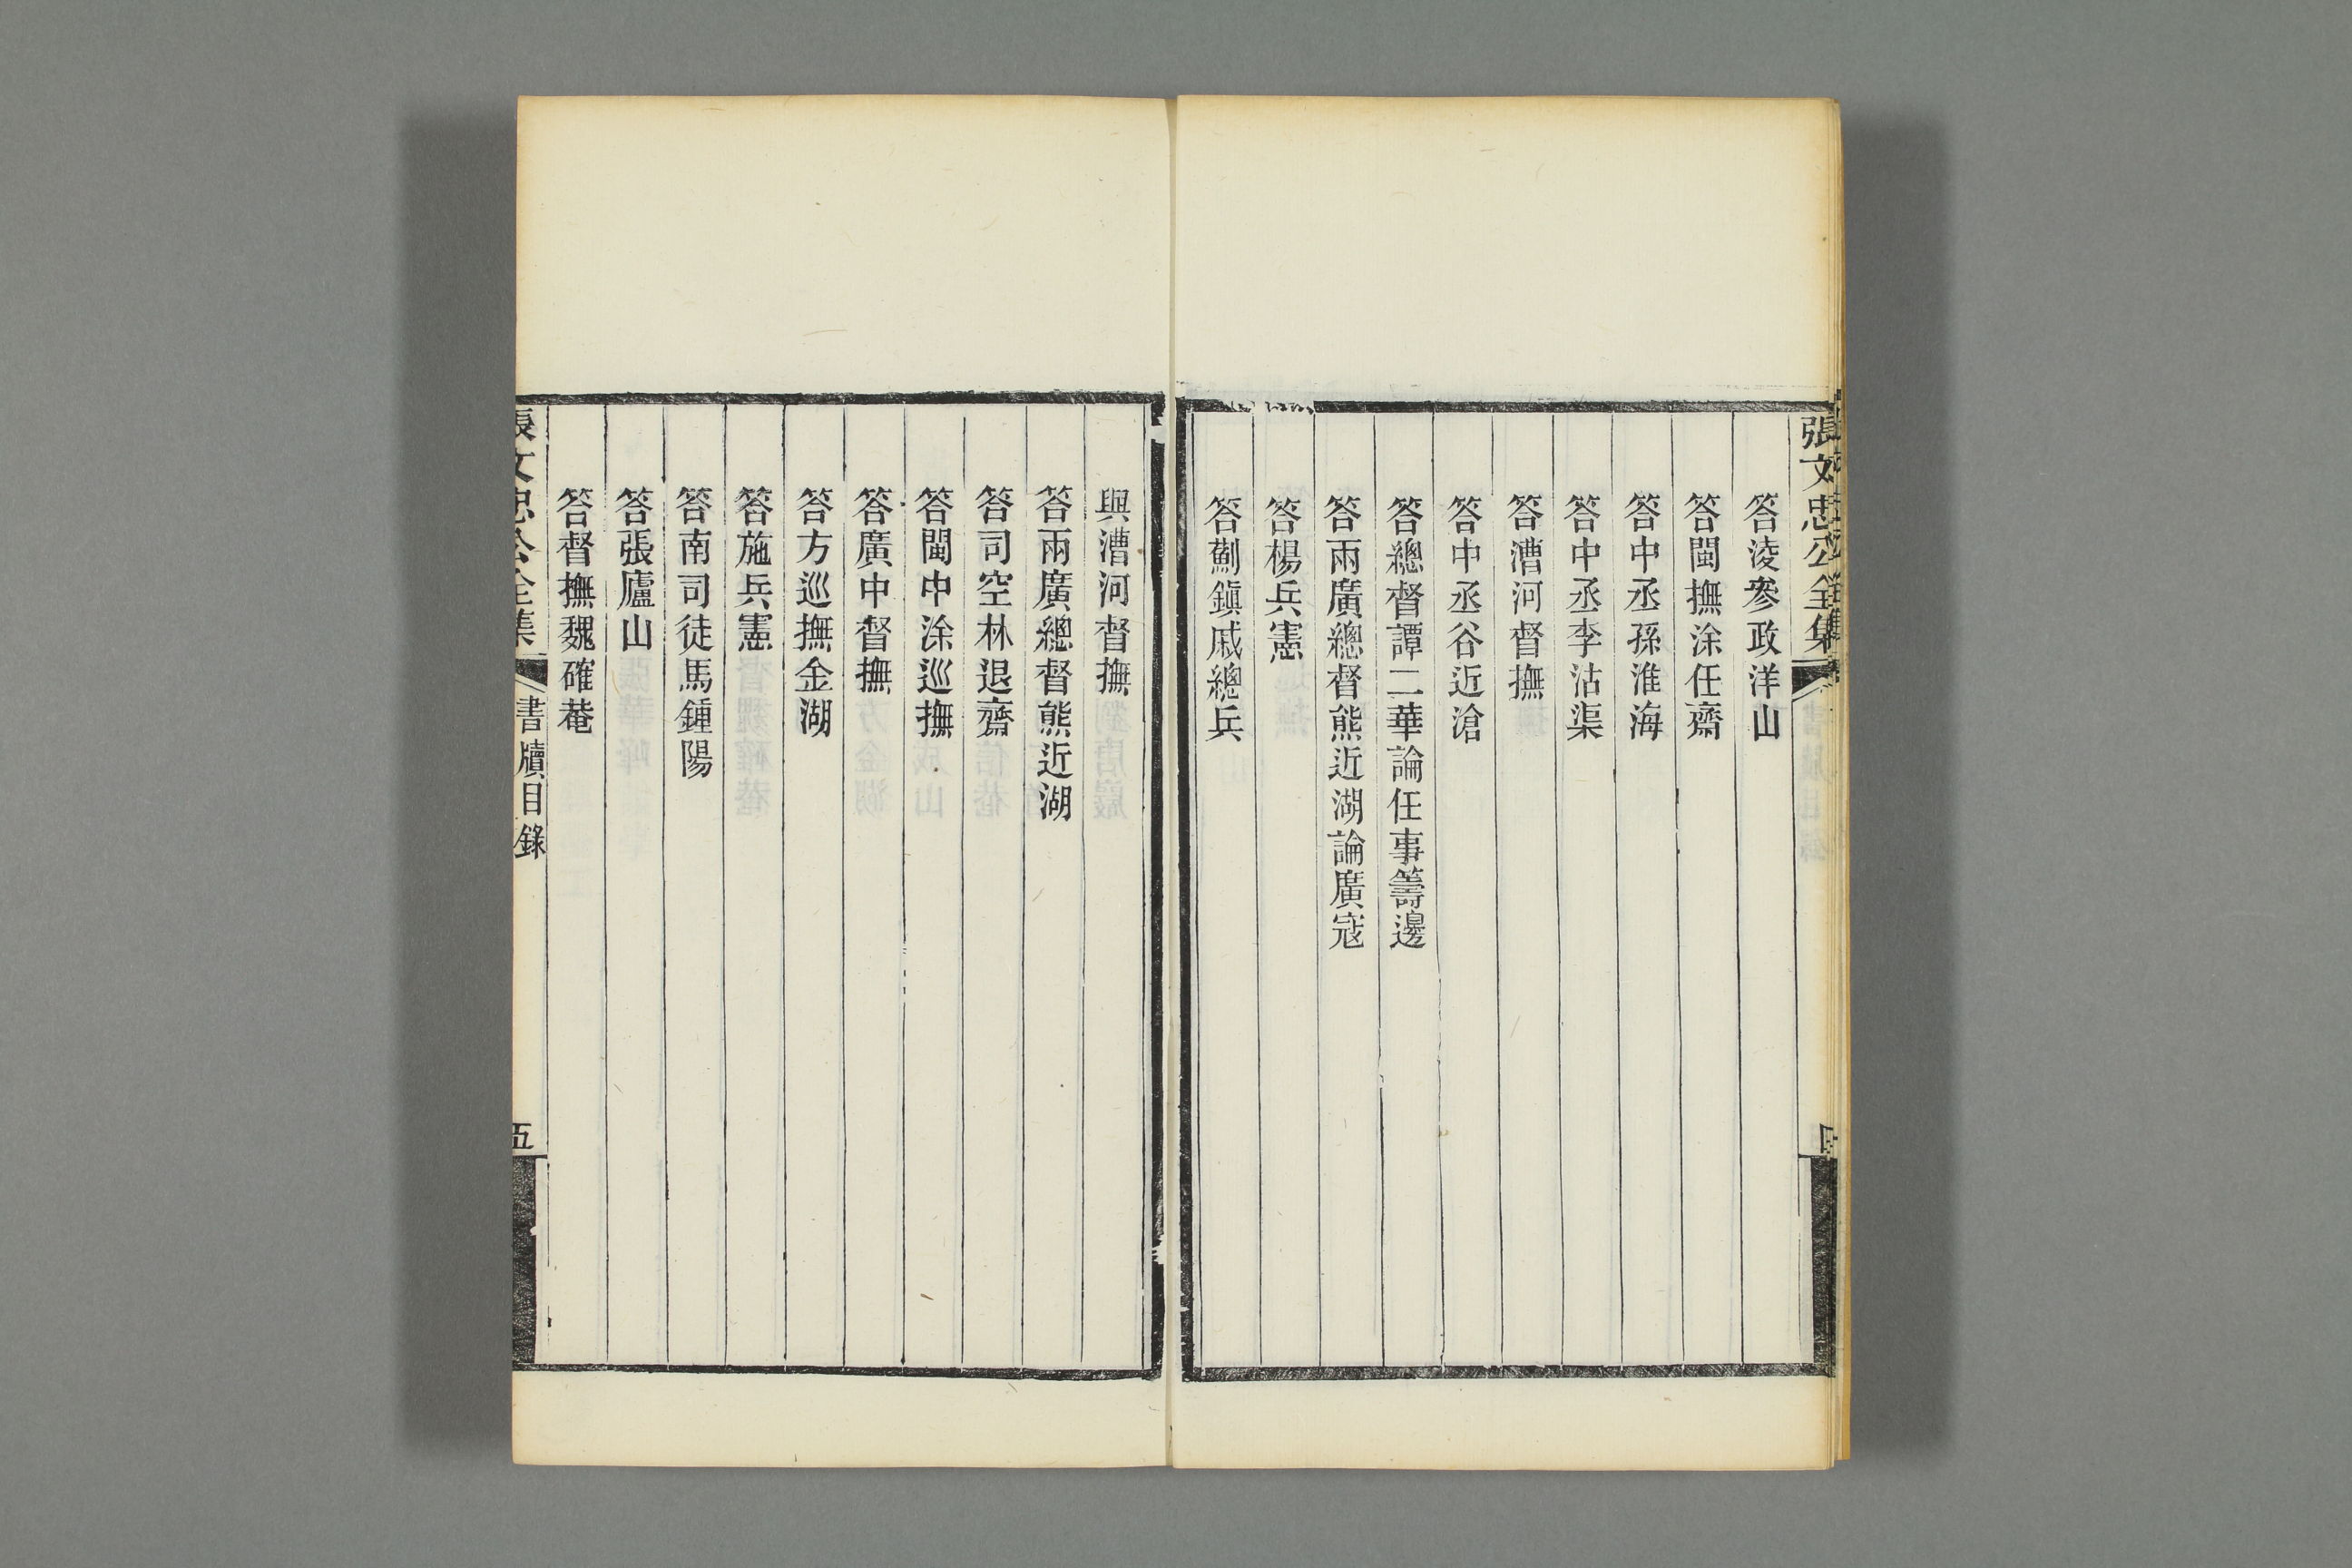 張文忠公全集
答淩參政洋山
答閩撫涂任齋
答中丞孫淮海
答中丞李沽渠
答漕河督撫
答中丞谷近滄
答總督譚二華論任事籌邊
答兩廣總督熊近湖論廣寇
答楊兵憲
答薊鎭戚總兵
與漕河督撫
答兩廣總督熊近湖
答司空林退齋
答閩中涂巡撫
答廣中督撫
答方巡撫金湖
答施兵憲
答南司徒馬鍾陽
答張廬山
答督撫魏確菴
張文忠公全集
書牘目錄
五